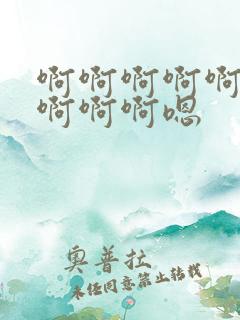 啊啊啊啊啊
啊啊啊嗯
奥普拉
未经同意禁止转载